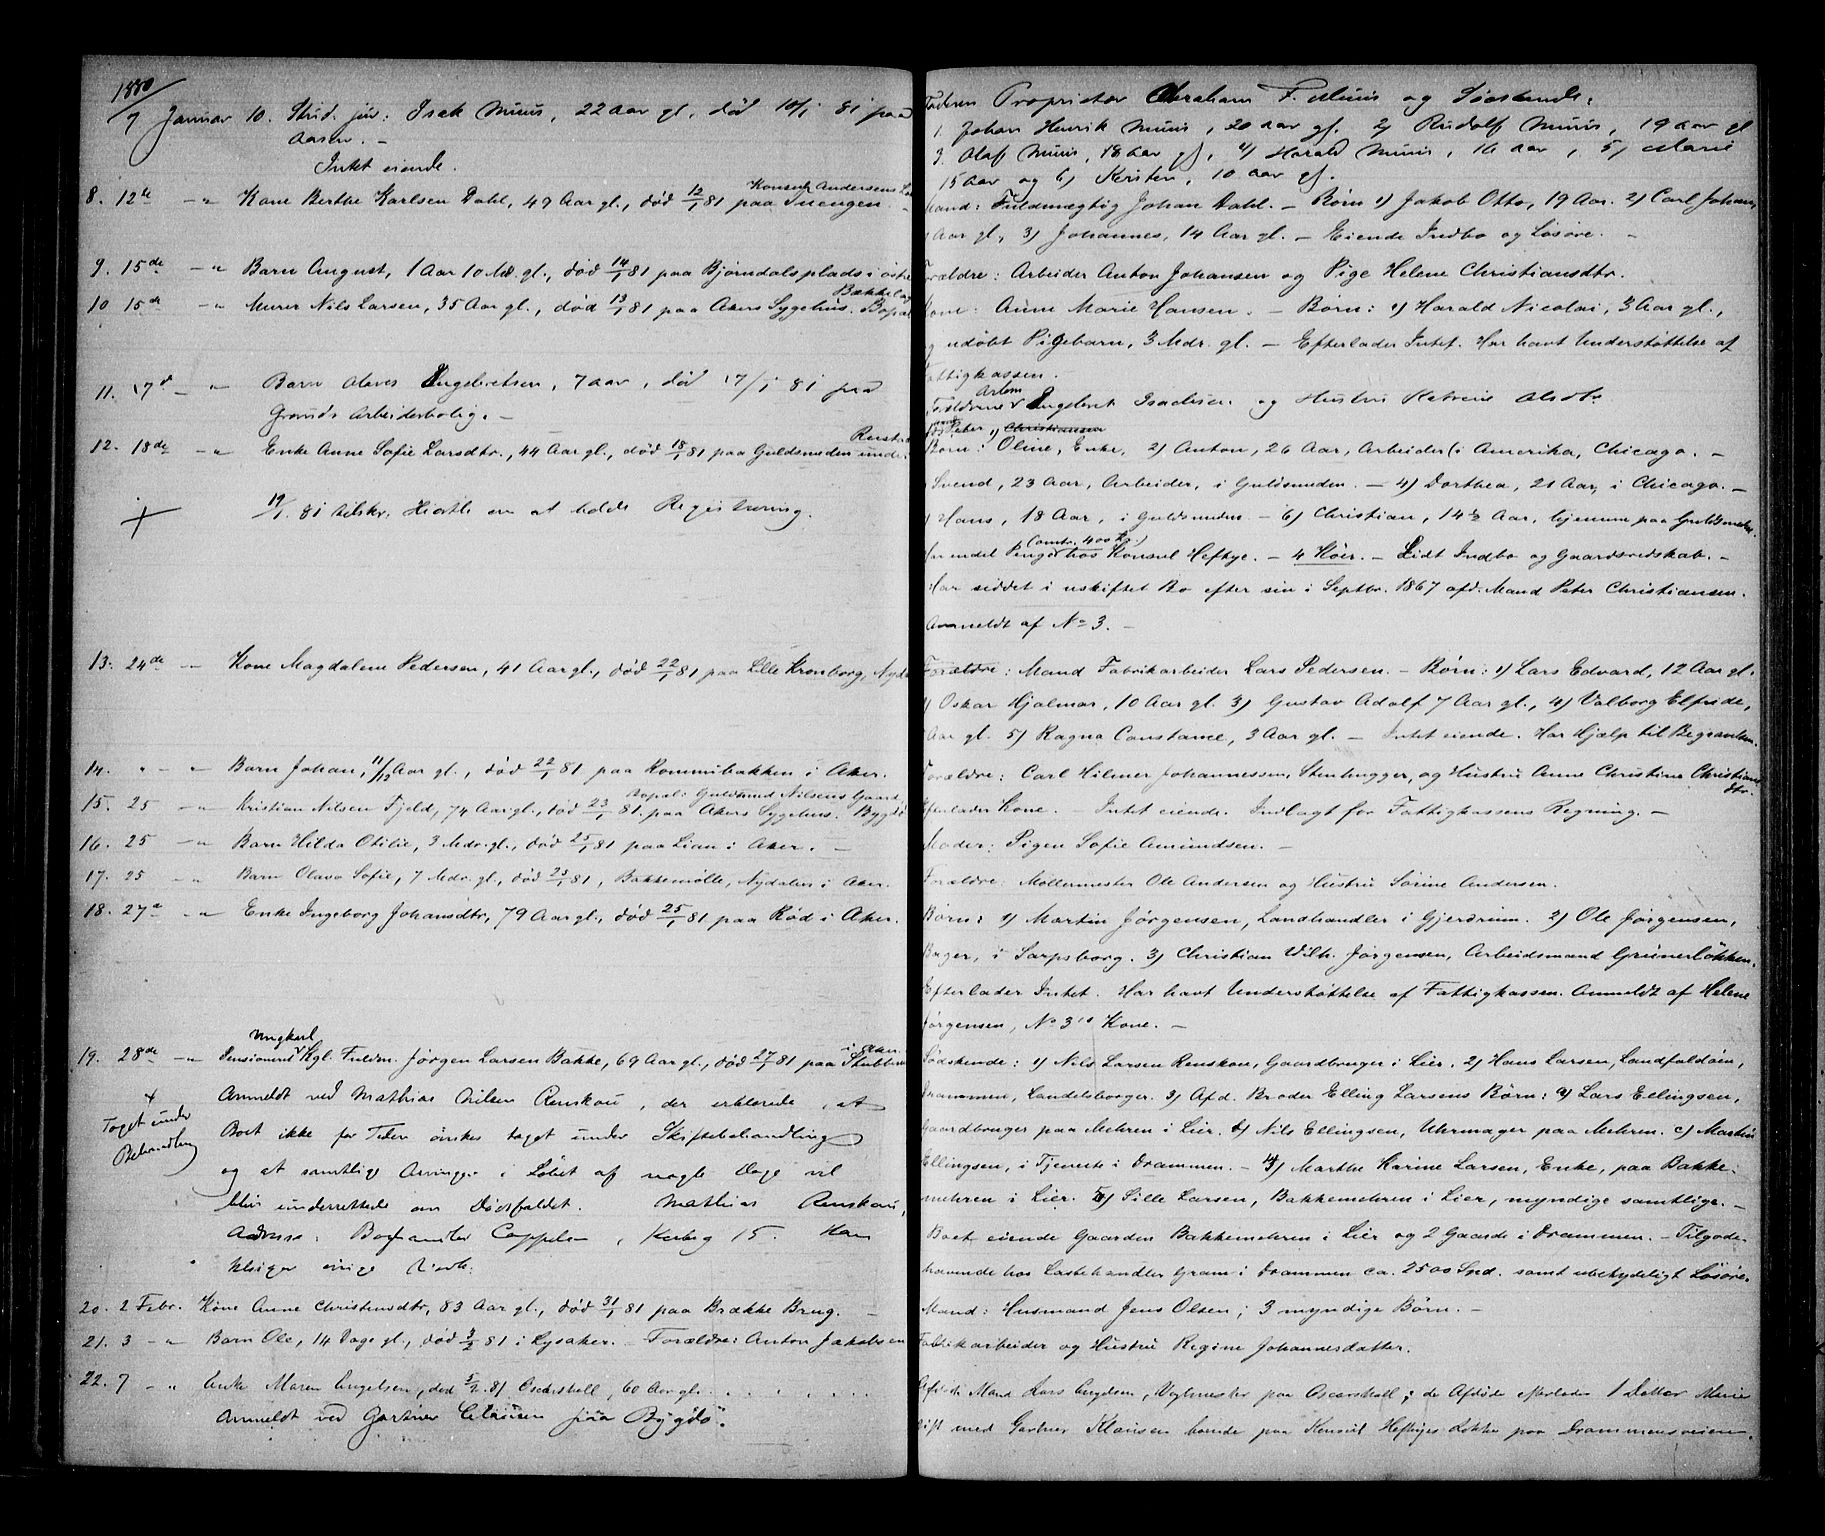 1880
7 Januar 10. Stud. jur: Isak Muus, 22 aar gl, død 10/1 81 paa
Aasen. –
Intet eiende.
Konsul Andersens
8. 12te – " Kone Berthe Karlsen Dahl, 49 Aar gl., død 12/1 81 paa Tuengen. –
9. 15de – " Barn August, 1 Aar 10 Md. gl., død 14/1 81 paa Bjørndalsplads i østre
Bækkelag
10 15de – " Murer Nils Larsen, 35 Aar gl., død 13/1 81 paa Akers Sygehus. Bopæl
11. 17d – " Barn Olaves Engebretsen, 7 aar, død 17/1 81 paa
Grorud Arbeiderbolig. –
12. 18de – " Enke Anne Sofie Larsdtr., 44 Aar gl., død 18/1 81 paa Guldsmeden under
19/1 81 tilskr. Hiorth om at holde Registrering.
13. 24de – Kone Magdalene Pedersen, 41 Aar gl., død 22/1 81 paa Lille Kronborg, Nyd
14. " – " Barn Johan, 11/12 Aar gl., død 22/1 81 paa Rommibakken i Aker.
Bopæl: Guldsmed Nilsens Gaard
15. 25 – " Kristian Nilsen Fjeld, 74 Aar gl., død 23/1 81. paa Akers Sygehus. Bygdø
16. 25 – " Barn Hilda Otilie, 3 Mdr. gl., død 25/1 81 paa Lian i Aker. –
17. 25 – " Barn Olava Sofie, 7 Mdr. gl., død 23/1 81, Bakkemølle, Nydalen i Aker.
18. 27de – " Enke Ingeborg Johansdtr, 79 Aar gl., død 25/1 81 paa Rød i Aker.
Ungkarl
i Aker
19. 28de – " Pensioneret Kgl. Fuldm. Jørgen Larsen Bakke, 69 Aar gl., død 27/1 81 paa
+ Anmeldt ved Mathias Nilsen Renskou, der erklærede, at
Taget under Boet ikke for Tiden ønskes taget under Skiftebehandling
Behandling og at samtlige Arvinger i Løbet af nogle Dage vil
blive underrettede om Dødsfaldet. Mathias Renskou,
Adresse: Boghandler Cappelen, Kirkeg 15. Han
20. 2 Febr. Kone Anne Christensdtr, 83 Aar gl., død 31/1 81 paa Brække Brug. –
21. 3 – " Barn Ole, 14 Dage gl., død 3/2 81 i Lysaker. – Forældre: Anton Jakobsen
22. 7 – " Enke Maren Engelsen, død 5/2. 81 Oscarshall, 60 Aar gl. . . . . . .
Anmeldt ved Gartner Clausen fra Bygdø.
Faderen Proprietær Abraham F. Muus og Søskende:
1. Johan Henrik Muus, 20 aar gl. 2) Rudolf Muus, 19 aar gl
3. Olaf Muus, 18 aar gl, 4) Harald Muus, 16 aar, 5) Marie
15 aar og 6) Kirsten, 10 aar gl.
Mand: Fuldmægtig Johan Dahl. – Børn 1) Jakob Otto, 19 Aar. 2) Carl Johan,
Aar gl, 3) Johannes, 14 Aar gl. – Eiende Indbo og Løsøre. –
Forældre: Arbeider Anton Johansen og Pige Helene Christiansdtr.
Kone: Anne Marie Hansen. – Børn: 1) Harald Nicolai, 3 Aar gl.,
og udøbt Pigebarn, 3 Mdr. gl. – Efterlader Intet. Har havt Understøttelse af
Fattigkassen. –
Forældrene Engebret Isachsen og Hustru Katrine Olsdtr
Peter 1) Christiansen
Børn: Oline, Enke, 2) Anton, 26 Aar, Arbeider i Amerika, Chicago. –
Svend, 23 Aar, Arbeider, i Guldsmeden. – 4) Dorthea, 21 Aar, i Chicago. –
Hans, 18 Aar, i Guldsmeden – 6) Christian, 14½ Aar, hjemme paa Guldsmeden.
(omtr. 400 Kr.)
Har endel Penge hos Konsul Heftye. – 4 Køer. – Lidt Indbo og Gaardsredskab. –
Har siddet i uskiftet Bo efter sin i Septbr. 1867 afd. Mand Peter Christiansen.
Anmeldt af No 3. –
Forældre: Mand Fabrikarbeider Lars Pedersen. – Børn: 1) Lars Edvard, 12 Aar gl.
Oskar Hjalmar, 10 Aar gl. 3) Gustav Adolf 7 Aar gl., 4) Valborg Elfride,
Aar gl. 5) Ragna Constance, 3 Aar gl. – Intet eiende. Har Hjælp til Begravelsen.
Forældre: Carl Hilmer Johannessen, Stenhugger, og Hustru Anne Christine Christians
dtr.
Efterlader Kone. – Intet eiende. Indlagt for Fattigkassens Regning. –
Moder: Pigen Sofie Amundsen. –
Forældre: Møllermester Ole Andersen og Hustru Sørine Andersen.
Børn: 1) Martin Jørgensen, Landhandler i Gjerdrum. 2) Ole Jørgensen,
Bager, i Sarpsborg. 3) Christian Wilh. Jørgensen, Arbeidsmand Grünerløkken.
Efterlader Intet. Har havt Understøttelse af Fattigkassen. Anmeldt af Helene
Jørgensen, No 3's Kone. –
Sødskende: 1) Nils Larsen Renskou, Gaardbruger i Lier. 2) Hans Larsen, Landfaldøen,
Drammen, 3) Afd. Broder Elling Larsens Børn: a) Lars Ellingsen,
Gaardbruger paa Mehren i Lier. b) Nils Ellingsen, Uhrmager paa Mehren. c) Martin
Ellingsen, i Tjeneste i Drammen. – 4) Marthe Karine Larsen, Enke, paa Bakke-
mehren i Lier. 5) Sille Larsen, Bakkemehren i Lier, myndige samtlige. –
Boet eiende Gaarden Bakkemehren i Lier og 2 Gaarde i Drammen. – Tilgode-
havende hos Lastehandler Gram i Drammen ca. 2500 Spd. samt ubetydeligt Løsøre.
Mand: Husmand Jens Olsen; 3 myndige Børn. –
Fabrikarbeider og Hustru Regine Johannesdatter.
Afdøde Mand Lars Engelsen, Vogtmester paa Oscarshall; de Afdøde efterlader 1 Datter Maria
gift med Gartner Klausen boende paa Konsul Heftyes Løkke paa Drammensveien.